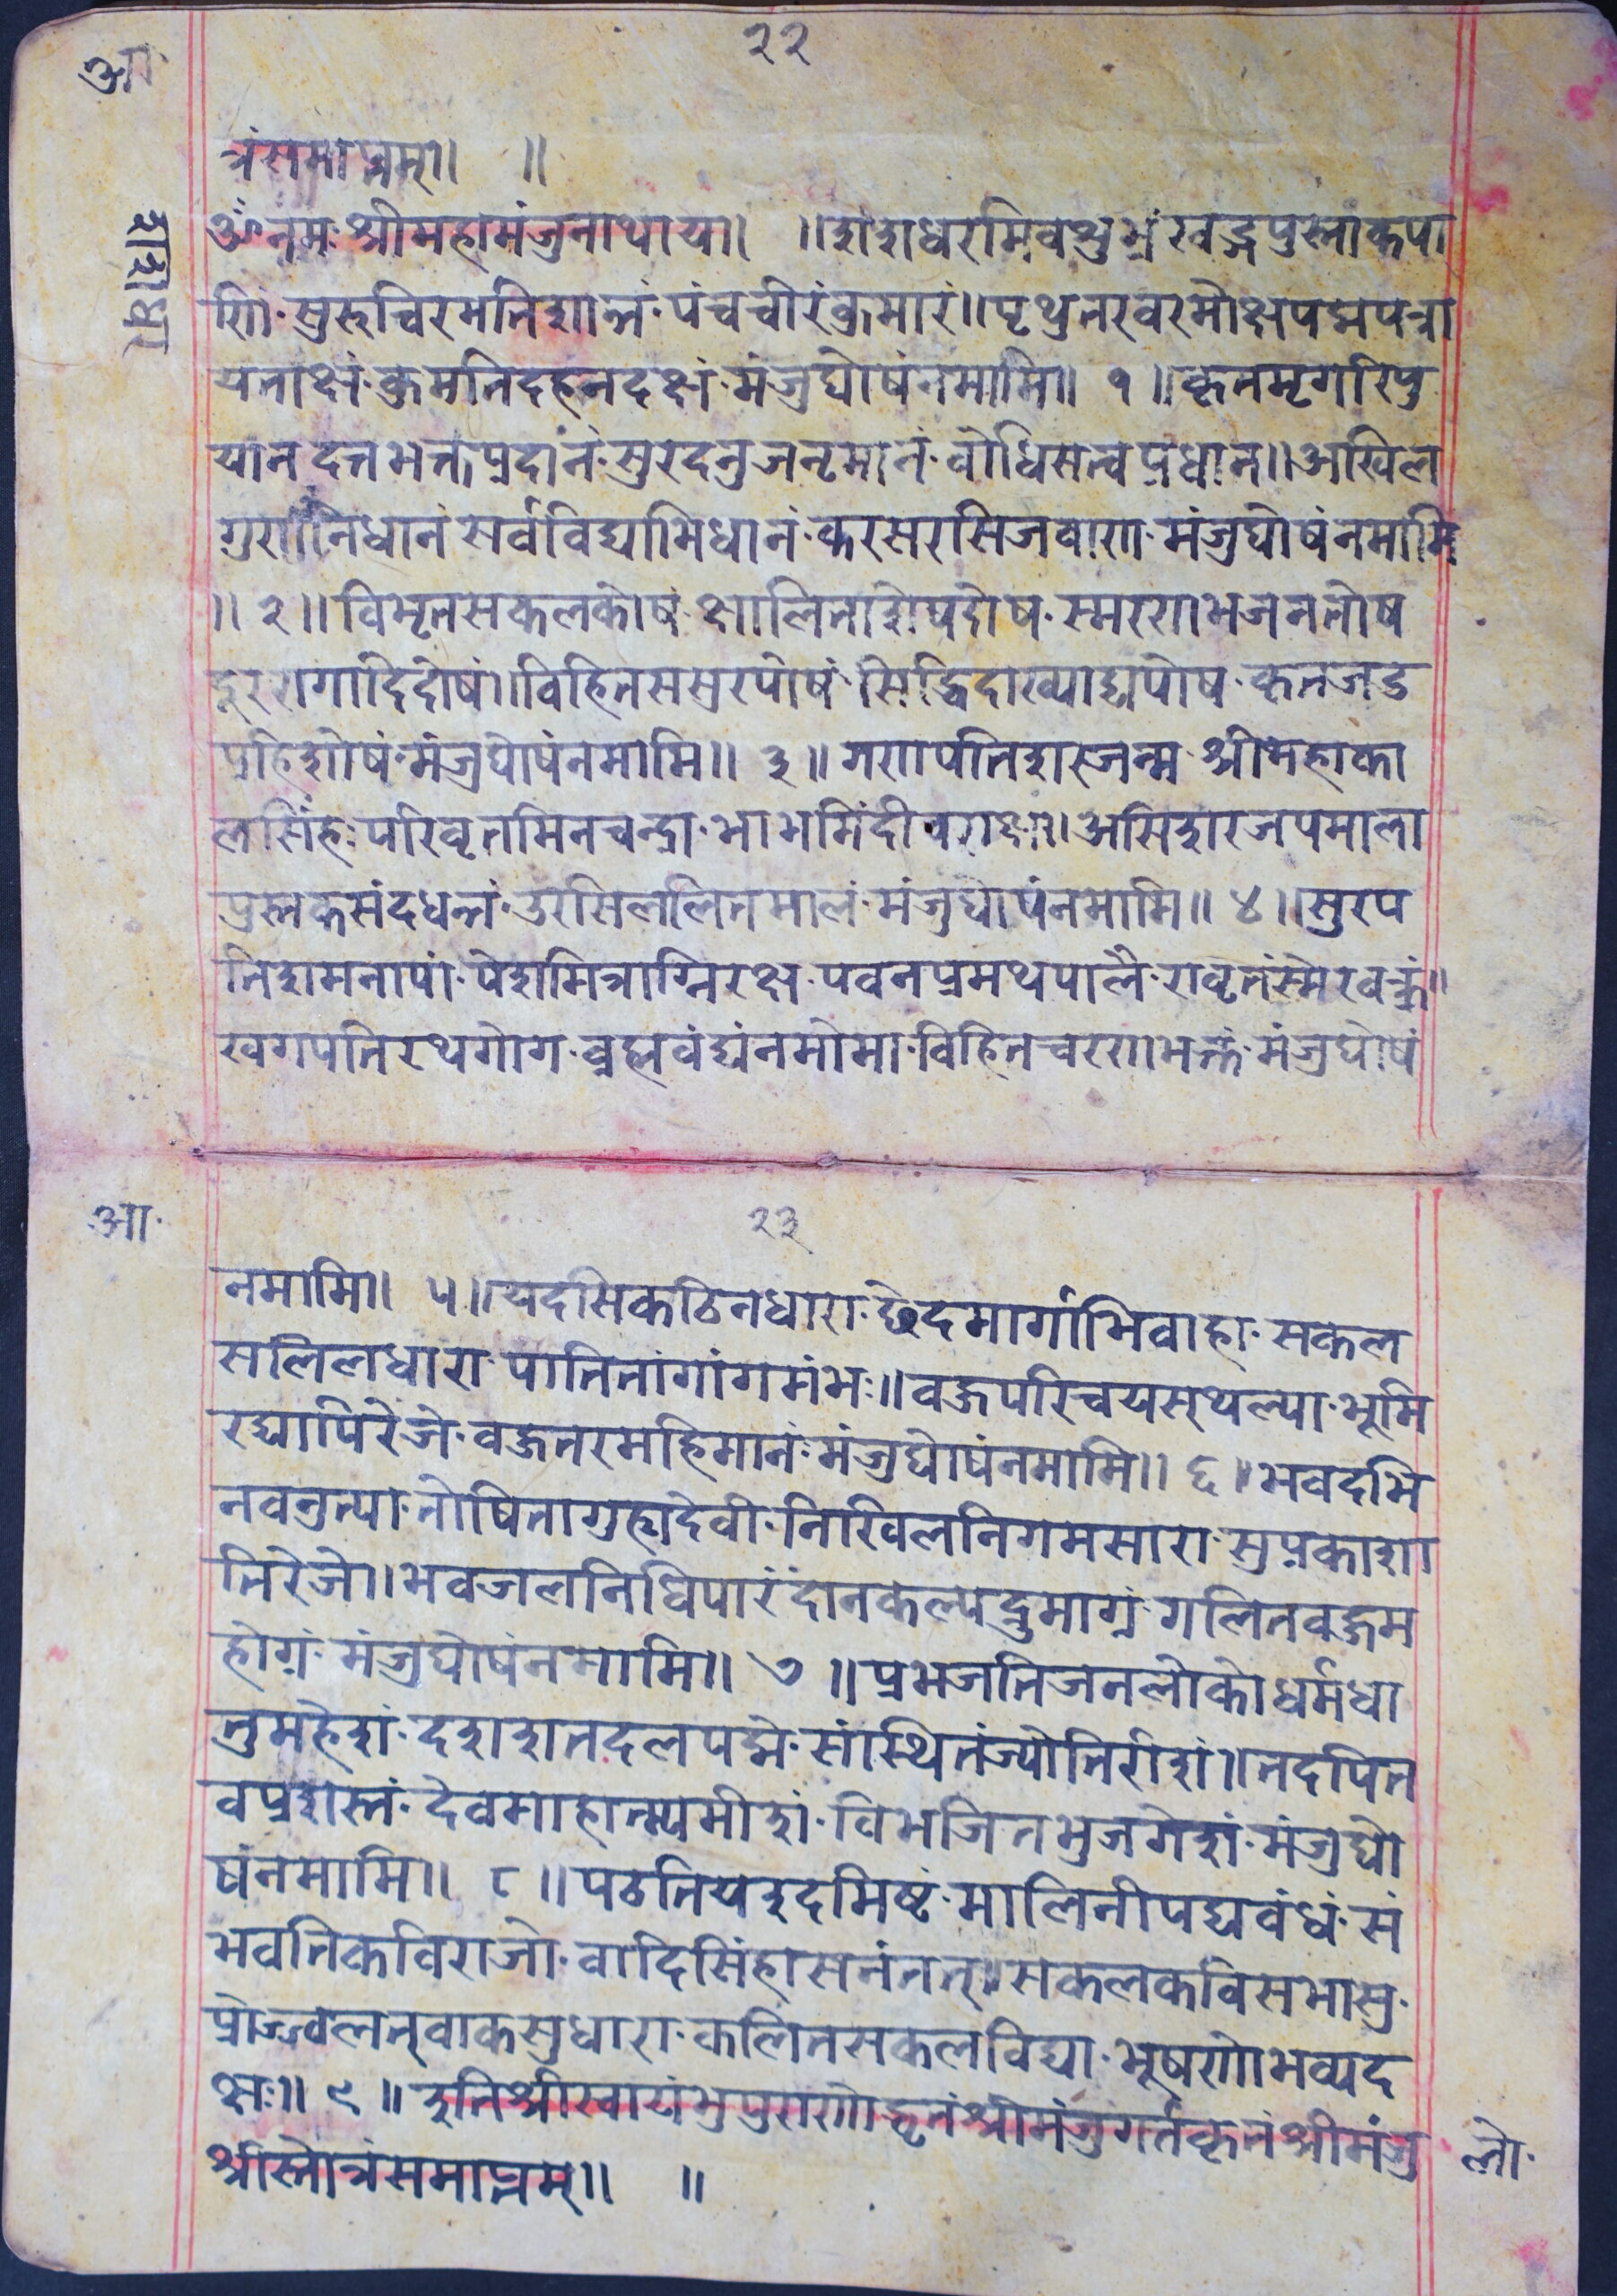 २२
आ
त्रं समाप्तम्॥ ॥
ॐ नमः श्रीमहामंजुनाथाय॥ ॥शशधरमिवशुभ्रं खड्गपुस्तांकपा
शशधर
णिं· सुरुचिरमतिशान्तं· पंचचीरं कुमारं॥ पृथुतरवरमोक्षपद्मपत्रा
यताक्षं· कुमतिदहनदक्षं· मंजुघोषं नमामि॥ १ ॥कृतमृगरिपु
यान दत्तभक्तप्रदानं· सुरदनुजनृमानं· बोधिसत्वप्रधान॥अखिल
गुणनिधानं सर्वविद्याभिधानं· करसरसिजवाण· मंजुघोषं नमामि
॥ २ ॥विभृतसकलकोषं· क्षालिताशेषदोष· स्मरणभजनतोष
दूररागादिदोषं॥विहितससुरपोषं· सिद्धिदाख्याद्यपोष· कृतजड
प्रहिशोषं· मंजुघोषं नमामि॥ ३ ॥ गणपतिशरजन्म· श्रीमहाका
लसिंहः· परिवृतमिनचन्द्रा· भाभमिंदीवराक्ष॥असिशरजपमाला
पुस्तकसंदधन्तं· उरसिललितमालं· मंजुघोषं नमामि॥ ४ ॥सुरप
तिशमनापां· पेशमित्राग्निरक्ष· पवनप्रमथपालै· रावृतंस्मेरवक्त्रं॥
खगपतिरथगोग· ब्रह्मवंद्यं नमोमा· विहितचरणभक्तं· मंजुघोषं
आ·
२३
नमामि॥ ५॥यदसिकठिनधारा· छेदमार्गाभिवाहा· सकल
सलिलधारा· पातितांगांगमंभः॥वज्रपरिचयस्थल्पा· भूमि
रद्यापिरेजे· वज्रतरमहिमानं· मंजुघोषं नमामि॥ ६ ॥भवदभि
नवनुत्या· तोषितागुह्यदेवी· निखिलनिगमसारा· सुप्रकाशा
तिरेजे॥भवजलनिधिपारं दानकल्पद्रुमाग्रं· गलितवज्रम
होग्रं· मंजुघोषं नमामि॥ ७ ॥प्रभजतिजनलोको धर्मधा
तुमहेशं· दशशतदलपद्मे· संस्थितंज्योतिरीशं॥तदपित
वप्रशस्तं· देवमाहात्म्यमीशं· विभजितभुजगेशं· मंजुघो
षं नमामि॥ ८ ॥पठतियइदमिष्टं· मालिनीपद्यवंधं· सं
भवतिकविराजो· वादिसिंहासनंतत्॥सकलकविसभासु·
प्रोज्ज्वलत्वाकसुधारा· कलितसकलविद्या· भूषणोभव्यद
क्षः॥ ९ ॥ इतिश्रीस्वायंभुपुराणोद्धृतंश्रीमंजुगर्तकृतंश्रीमंजु लो·
श्रीस्तोत्रंसमाप्तम्॥ ॥